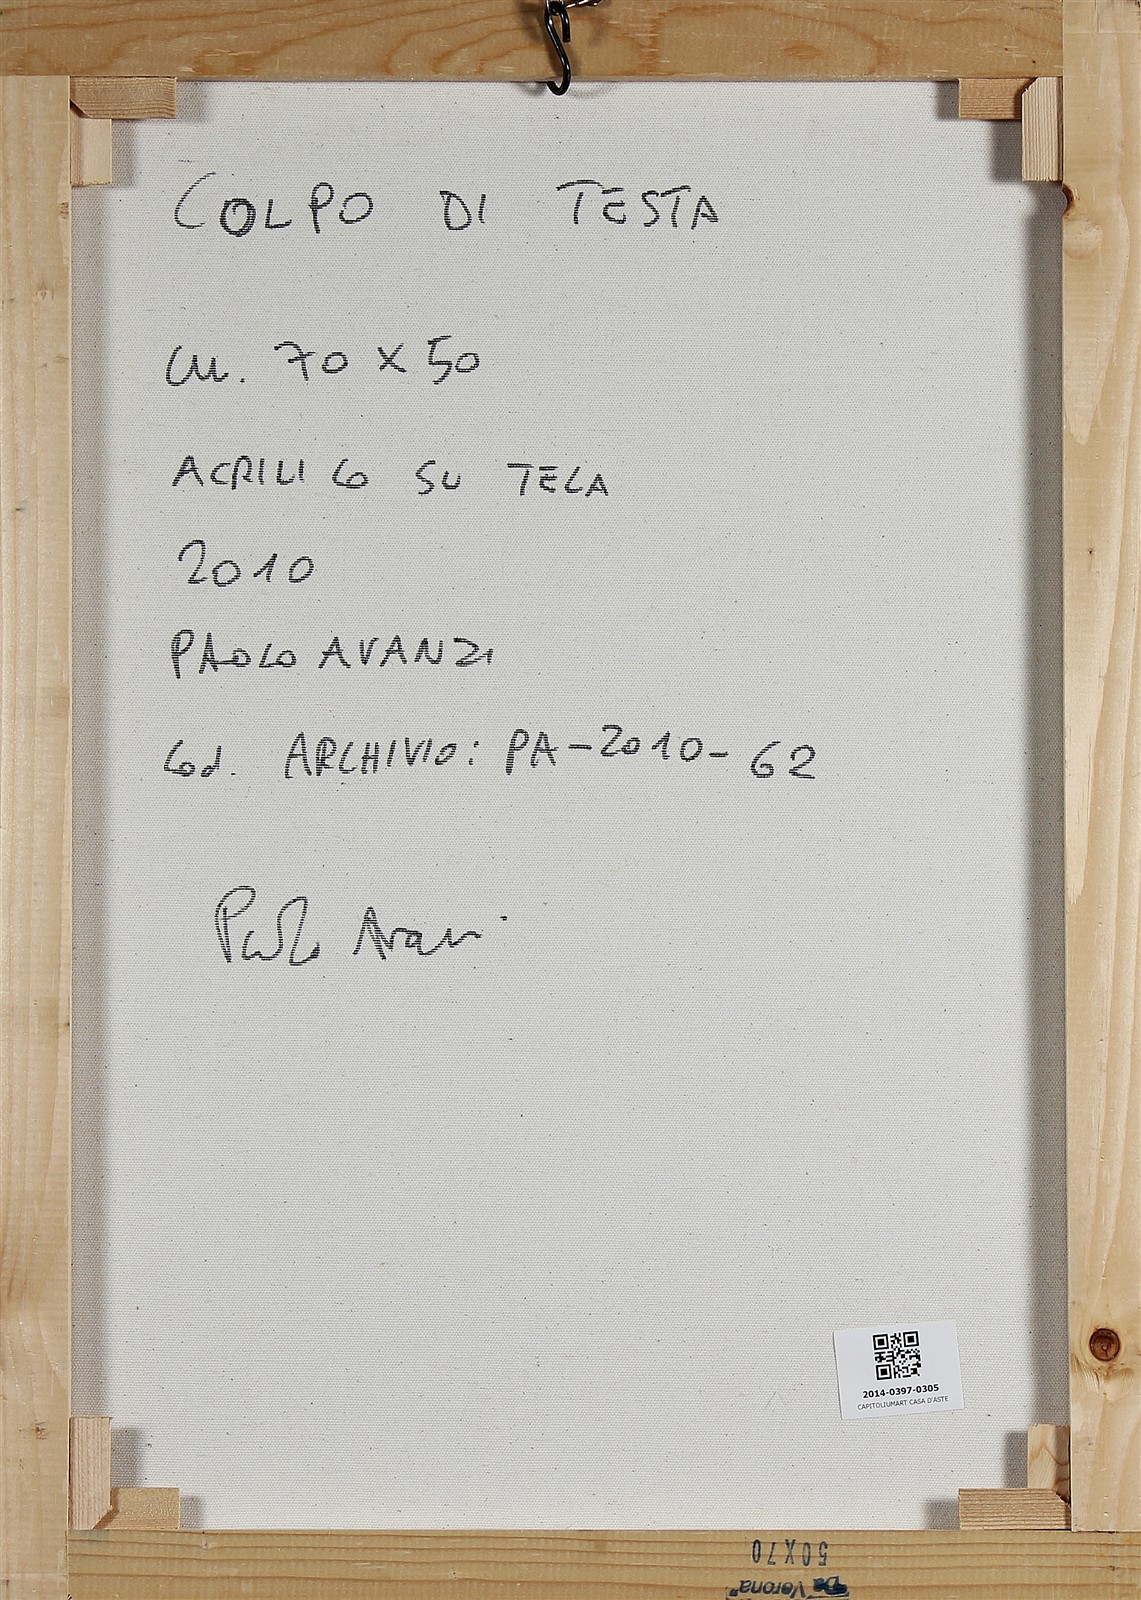 COLPO DI TESTA
cm. 70 x 50
ACRILICO SU TELA
2010
PAOLO AVANZI
Cod. ARCHIVIO: PA-2010-62
Paolo Avanzi
2014-0397-0305
CAPITOLIUMART CASA D'ASTE
50X70
"Da Verona"